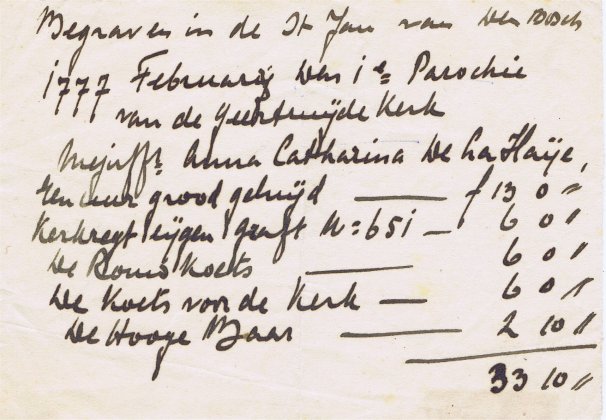 Begraven in de St Jan van Den Bosch
1777 Februarij den 1e Parochie
van de Geertruijde Kerk
Mejuffr. Anna Catharina De La Haije,
Een uur groot geluijd — f 13 0 "
Kerkregt eijgen graft N= 651 — 6 0 "
De Rouw Koets — 6 0 "
De Koets voor de Kerk — 6 0 "
De Hooge Baar — 2 10 "
33 10 "